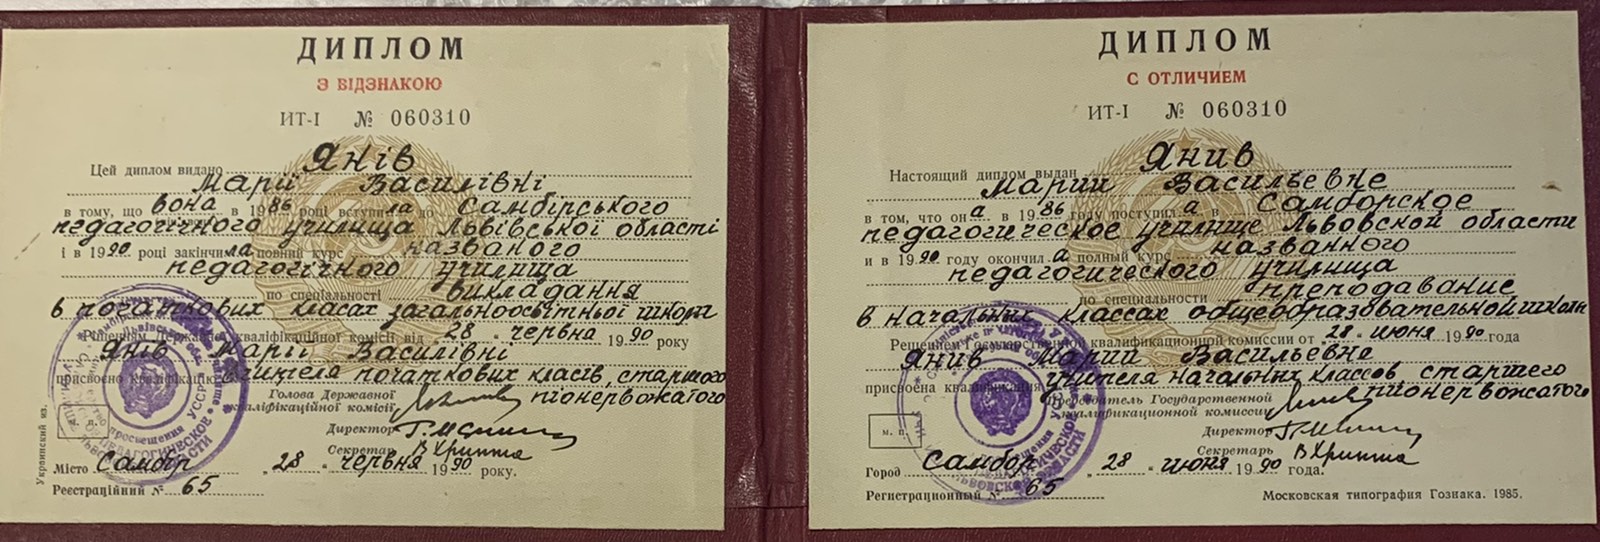 ДИПЛОМ
З ВІДЗНАКОЮ
ИТ-I № 060310
Цей диплом видано Янів
Марії Василівні
в тому, що вона в 1986 році вступила до Самбірського
педагогічного училища Львівської області
і в 1990 році закінчила повний курс названого
педагогічного училища
по спеціальності викладання
в початкових класах загальноосвітньої школи
Рішенням Державної кваліфікаційної комісії від 28 червня 1990 року
Янів Марії Василівні
присвоєно кваліфікацію вчителя початкових класів, старшого
піонервожатого
Голова Державної
кваліфікаційної комісії
Директор
Секретар
М. П.
Місто Самбір „28“ червня 1990 року.
Реєстраційний № 65
Украинский яз.
ДИПЛОМ
С ОТЛИЧИЕМ
ИТ-I № 060310
Настоящий диплом выдан Янив
Марии Васильевне
в том, что она в 1986 году поступила в Самборское
педагогическое училище Львовской области
и в 1990 году окончила полный курс названного
педагогического училища
по специальности преподавание
в начальных классах общеобразвательной школы
Решением Государственной квалификационной комиссии от „28“ июня 1990 года
Янив Марии Васильевне
присвоена квалификация учителя начальных классов старшего
пионервожатого
Председатель Государственной
квалификационной комиссии
Директор
Секретарь
М. П.
Город Самбор „28“ июня 1990 года.
Регистрационный № 65
Московская типография Гознака. 1985.